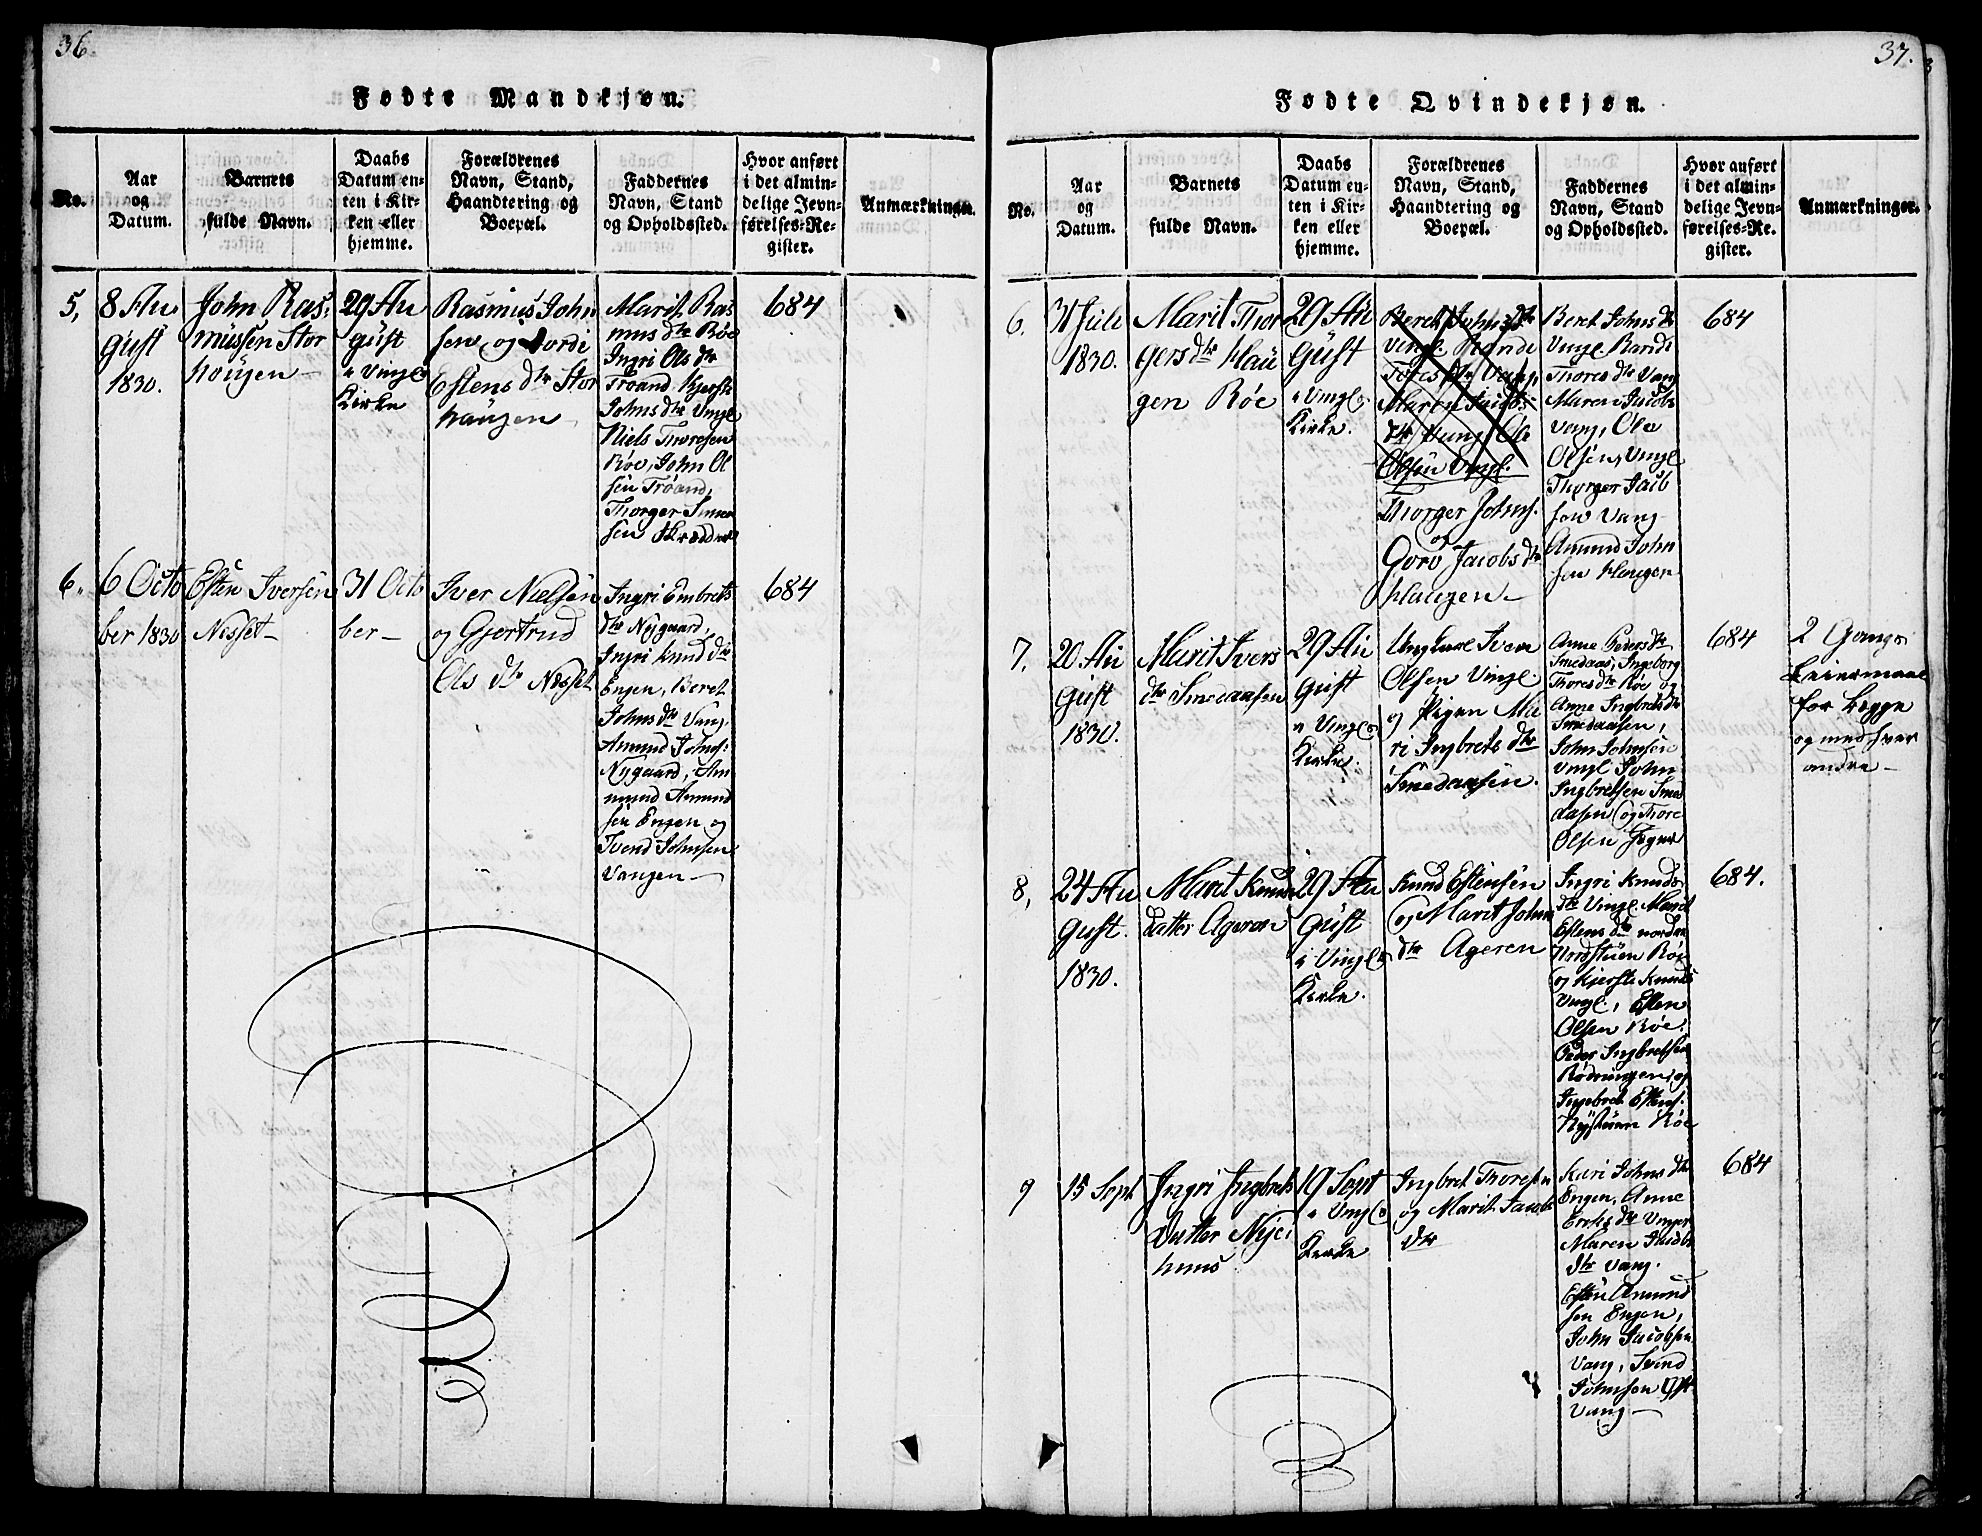 36.
Fødte Mandkjøn.
No.
Aar
og
Datum.
Barnets
fulde Navn.
Daabs
Datum en-
ten i Kir-
ken eller
hjemme.
Forældrenes
Navn, Stand,
Haandtering og
Boepæl.
Faddernes
Navn, Stand
og Opholdssted.
Hvor anført
i det almin-
delige Jevn-
førelses-Re-
gister.
Anmærkninger.
5,
8 Au
gust
1830.
John Ras-
mussen Stor
hougen
29 Au
gust
i Vingl.
Kirke
Rasmus John
sen og Jordi
Estens dtr Stor
haugen
Marit Ras
mus dtr Röe
Ingri Ols dtr
Tröand Kjersti
Johns dtr Vingl
Niels Thoresen
Röe, John Ol
sen Tröand,
Thorger Simen
sen Skrædder
684
6.
6 Octo
ber 1830
Esten Iversen
Nesset
31 Octo
ber
Iver Nielsen
og Gjertrud
Ols dtr Nesset
Ingri Embrets
dtr Nygaard,
Ingri Knud dtr
Engen, Beret
Johns dtr Vang,
Amund Johns:
Nygaard, Am
mund Amund
sen Engen og
Svend Johnsen
Vangen
684
37.
Fødte Qvindekjøn.
No.
Aar
og
Datum.
Barnets
fulde Navn.
Daabs
Datum en-
ten i Kir-
ken eller
hjemme.
Forældrenes
Navn, Stand,
Haandtering og
Boepæl.
Faddernes
Navn, Stand
og Opholdssted.
Hvor anført
i det almin-
delige Jevn-
førelses-Re-
gister.
Anmærkninger.
6.
31 Juli
1830.
Marit Thor
gers dtr Hau
gen Röe
29 Au
gust
i Vingl.
Kirke.
Beret Johns dtr
Vingl. Randi
Tores dtr Vang,
Maren Jacobs
dtr Vang, Ole
Olsen Vingl.
Thorger Johns.
og
Goro Jacobs dtr
Haugen
Beret Johns dtr
Vingl Randi
Thores dtr Vang
Maren Jacobs
Vang, Ole
Olsen, Vingl
Thorger Jacob
sen Vang
Amund John
sen Haugen
684
7.
20 Au
gust
1830.
Marit Ivers
dtr Smedaasen
29 Au
gust
i Vingl.
Kirke.
Ungkarl Iver
Olsen Vingl.
og Pigen Ma
ri Ingbrets dtr
Smedaasen.
Anne Peders dtr
Smedaas, Ingeborg
Thores dtr Röe og
Anne Ingbrets dtr
Smedaasen,
John Johnsen
Vingl John
Ingbretsen Sme
daasen og Thore
Olsen
684
2 Gange
Leiermaal
for begge
og med hver
andre
8,
24 Au
gust.
1830.
Marit Knuds
datter Ageren
29 Au
gust
i Vingl.
Kirke.
Knud Estensen
og Marit Johns
dtr Ageren
Ingri Knuds
dtr Vingl. Marit
Estens dtr nordre
Nordstuen Röe
og Kjersti Knuds
Vingl., Esten
Olsen Röe.
Peder Ingbretsen
Rödningen, og
Ingebret Estens.
Nystuen Röe
684.
9
15 Sept
Ingri Ingbrets
Datter Nye
huus
19 Sept
i Vingl.
Kirke
Ingbret Thoresen
og Marit Jacobs
dtr
Kari Johns dtr
Engen, Anne
Eriks dtr
Maren Jacobs
dtr Vang.
Esten Amund
sen Engen,
John Jacobsen
Vang, Svend
Johnsen
Vang
684